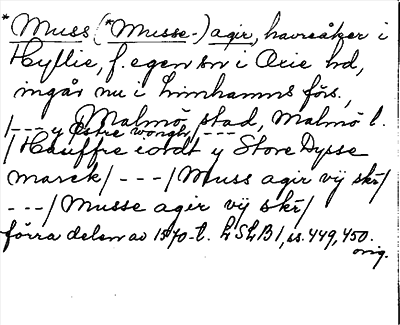 *Muss (*Musse-) agir, havreåker i
Hyllie, f. egen sn i Oxie hd,
ingår nu i Limhamns förs.,
Malmö stad, Malmö l.
/--- y Östre wongh/ ---
/ Hauffre iordt y Store Dysse
marck/ --- / Muss agir vij skr/
---/ Musse agir vij skr/
förra delen av 1570-t. LSLB 1, ss. 449, 450.
orig.